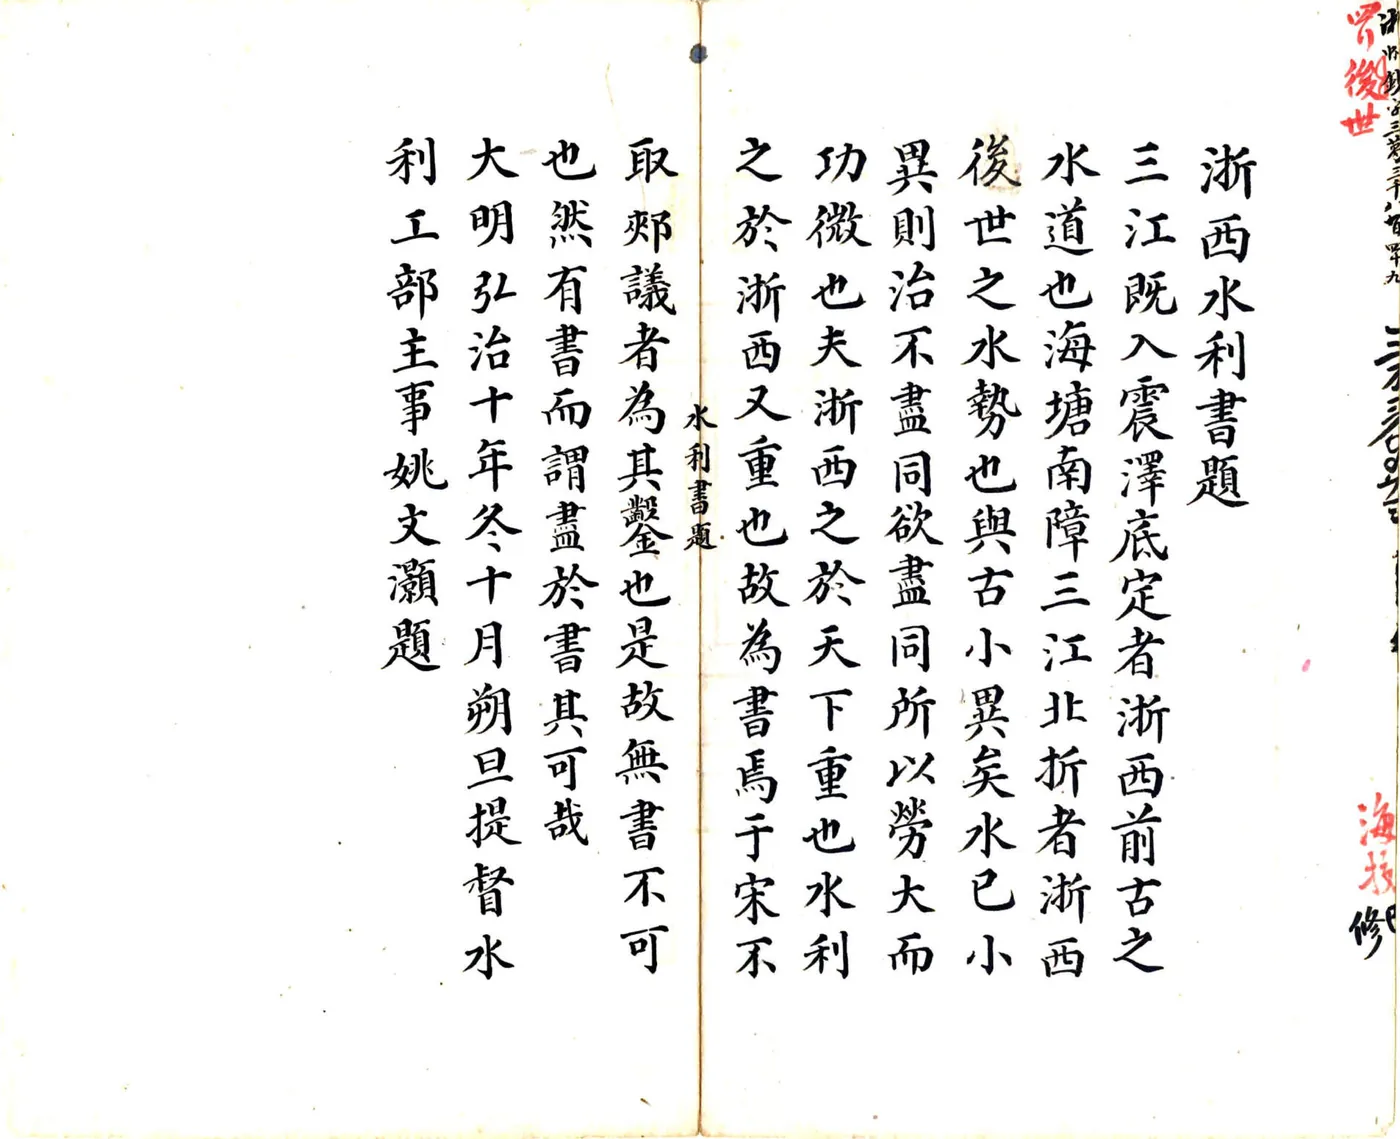 浙西水利書題
三江既入震澤底定者浙西前古之
水道也海塘南障三江北折者浙西
後世之水勢也與古小異矣水已小
異則治不盡同欲盡同所以勞大而
功微也夫浙西之於天下重也水利
之於浙西又重也故為書焉于宋不
水利書題
取郟議者為其鑿也是故無書不可
也然有書而謂盡於書其可哉
大明弘治十年冬十月朔旦提督水
利工部主事姚文灝題
後世
海
修